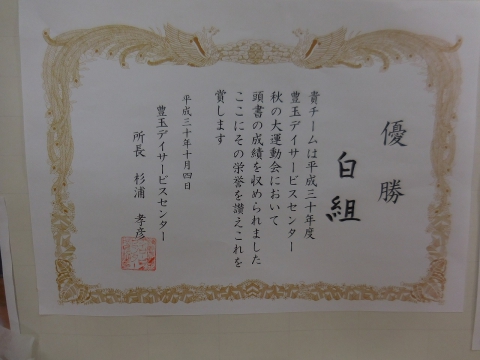 優勝
白組
貴チームは平成三十年度
豊玉デイサービスセンター
秋の大運動会において
頭書の成績を収められました
ここにその栄誉を讃えこれを
賞します
平成三十年十月四日
豊玉デイサービスセンター
所長 杉浦 孝彦